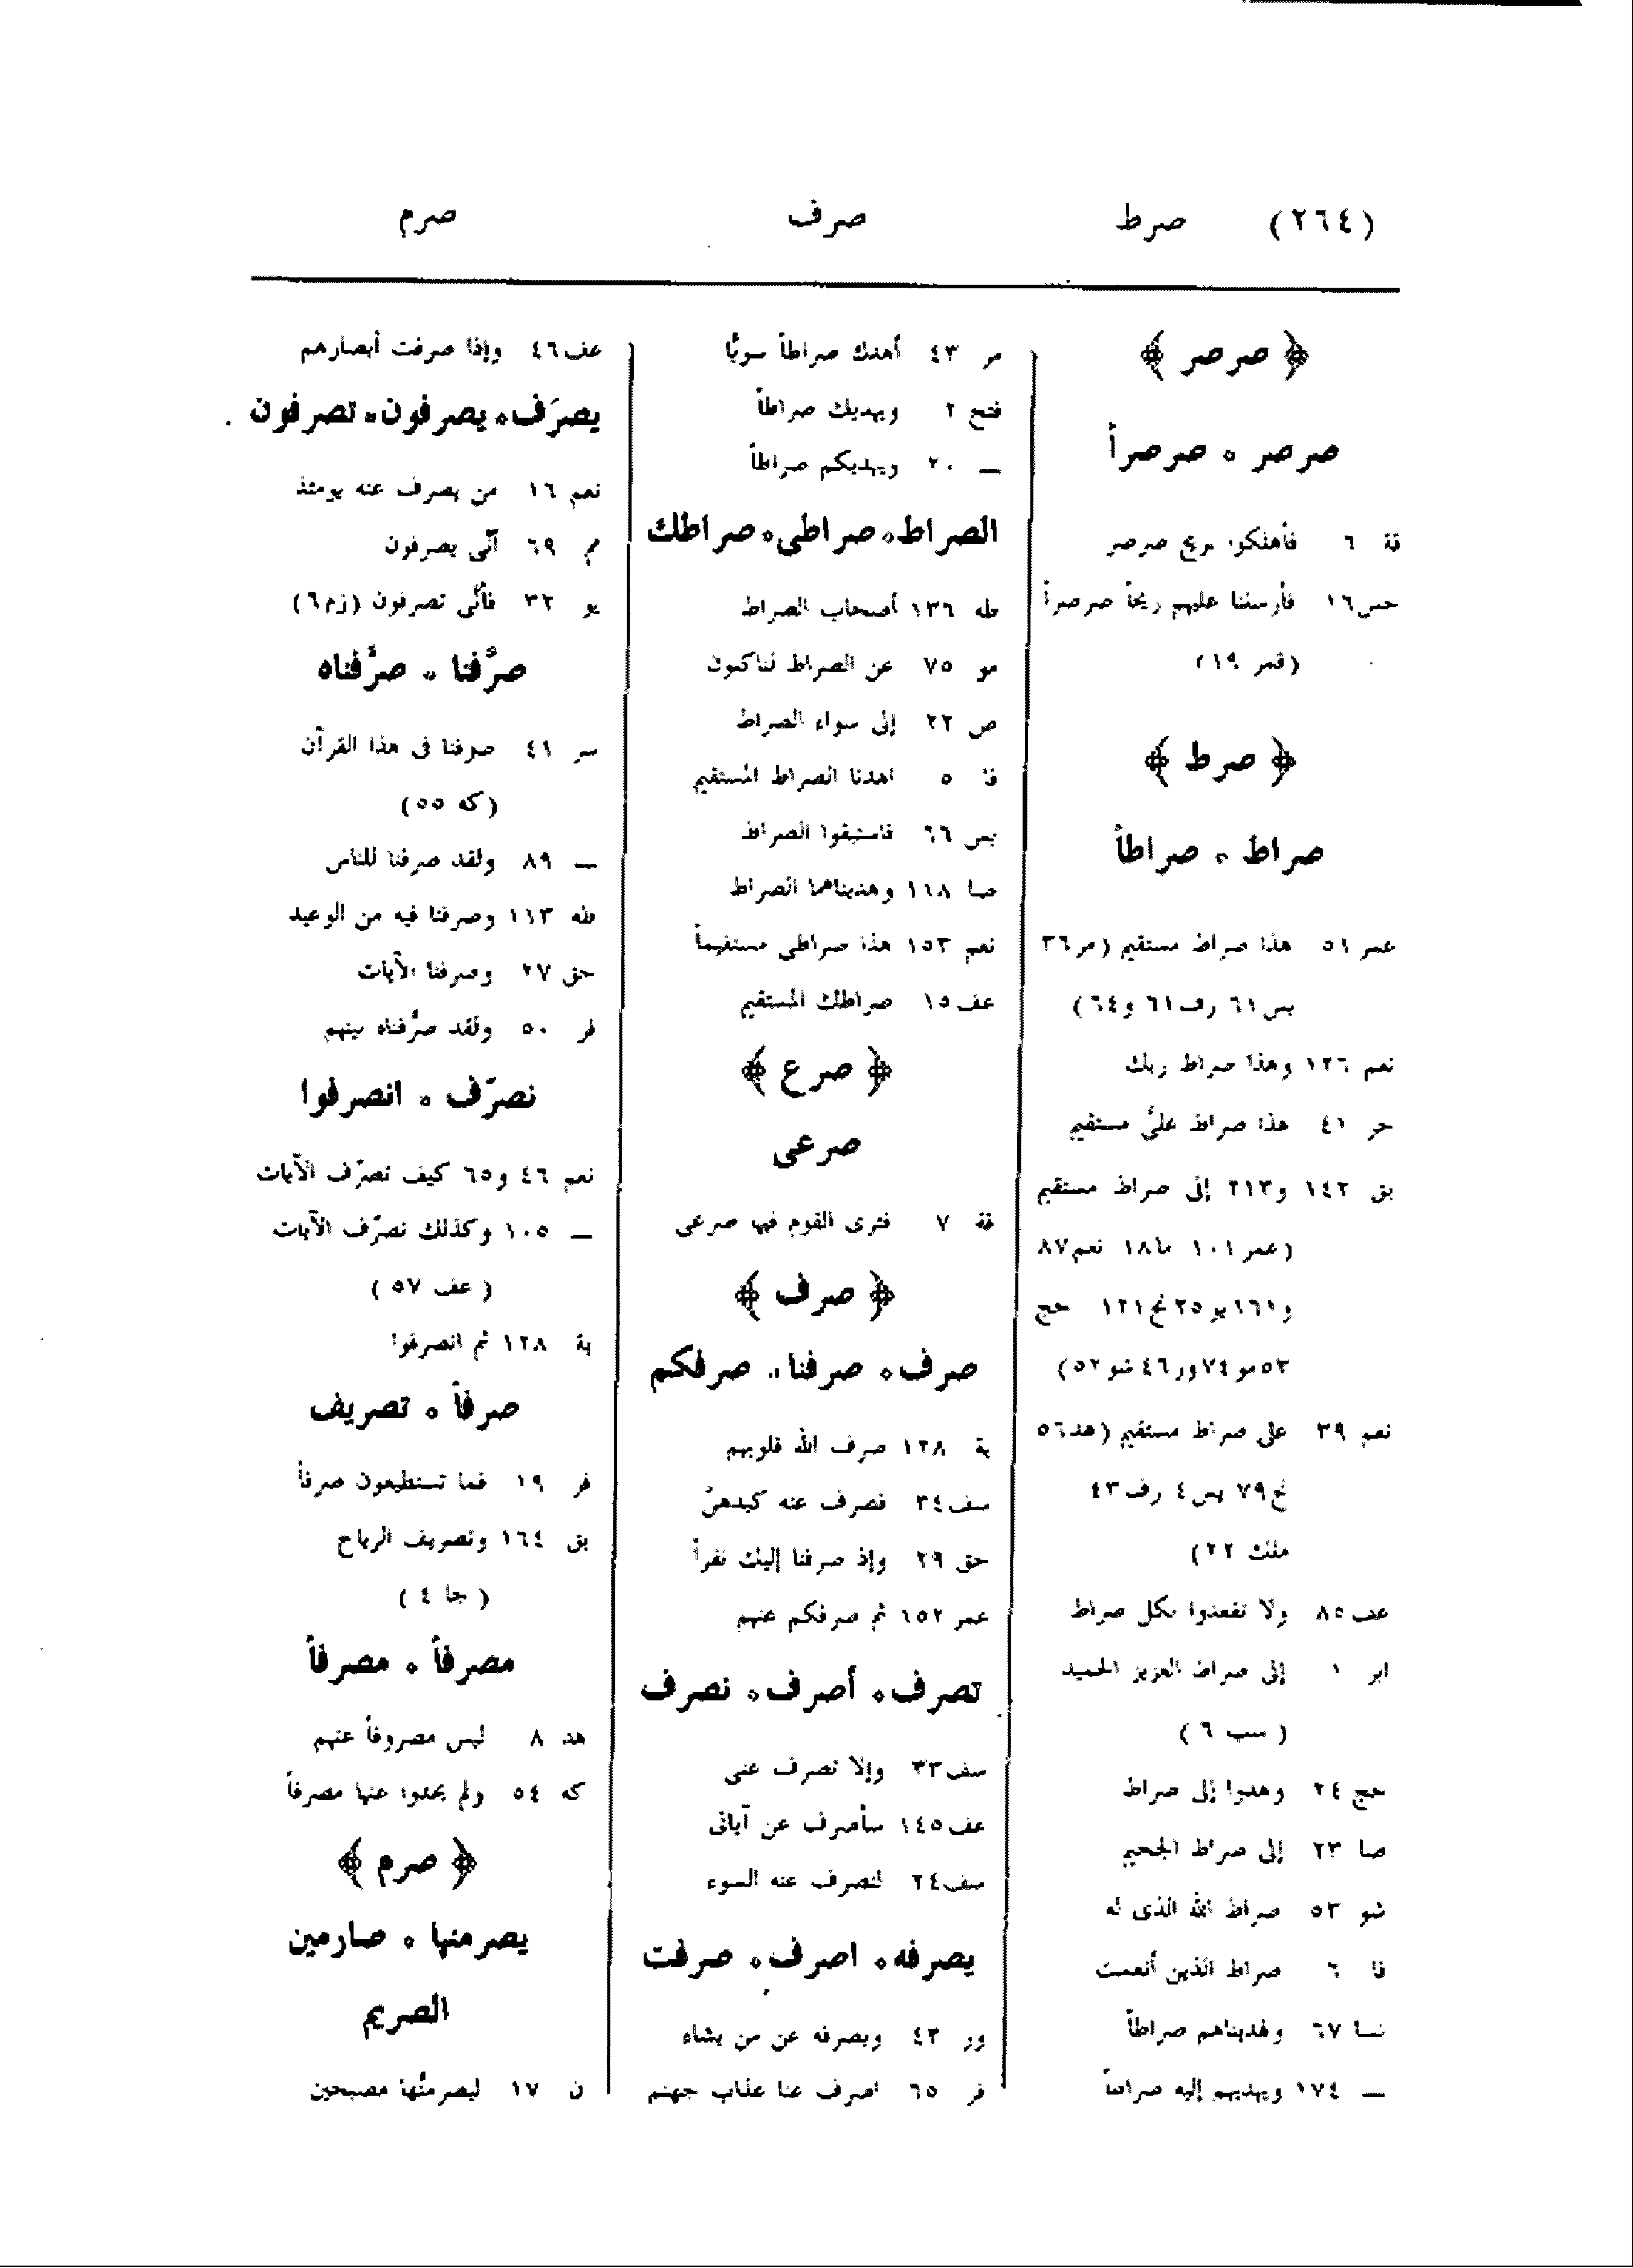 (٢٦٤) صرط صرف صرم
﴿ صرصر ﴾
صرصر ٥ صرصراً
قة ٦ فأهلكوا بريح صرصر
حس١٦ فأرسلنا عليهم ريحاً صرصراً
(قمر ١٩)
﴿ صرط ﴾
صراط ٥ صراطاً
عمر ٥١ هذا صراط مستقيم (مر٣٦
يس٦١ رف٦١ و٦٤)
نعم ١٢٦ وهذا صراط ربك
حر ٤١ هذا صراط علىَّ مستقيم
بق ١٤٢ و٢١٣ إلى صراط مستقيم
(عمر١٠١ ما١٨ نعم٨٧
و١٦١يو٢٥ نح١٢١ حج
٥٣مو٧٤ور٤٦شو٥٢)
نعم ٣٩ على صراط مستقيم (هد٥٦
نح٧٩ يس٤ رف٤٣
ملك ٢٢)
عف٨٥ ولا تقعدوا بكل صراط
ابر ١ إلى صراط العزيز الحميد
(سب ٦)
حج ٢٤ وهدوا إلى صراط
صا ٢٣ إلى صراط الجحيم
شو ٥٣ صراط الله الذى له
فا ٦ صراط الذين أنعمت
نسا ٦٧ ولهديناهم صراطاً
ـــ ١٧٤ ويهديهم إليه صراطاً
مر ٤٣ أهدك صراطاً سويًّا
فتح ٢ ويهديك صراطاً
ـــ ٢٠ ويهديكم صراطاً
الصراط ٥ صراطى ٥ صراطك
طه ١٣٦ أصحاب الصراط
مو ٧٥ عن الصراط لناكبون
ص ٢٢ إلى سواء الصراط
فا ٥ اهدنا الصراط المستقيم
يس ٦٦ فاستبقوا الصراط
صا ١١٨ وهديناهما الصراط
نعم ١٥٣ هذا صراطى مستقيماً
عف١٥ صراطك المستقيم
﴿ صرع ﴾
صرعى
قة ٧ فترى القوم فيها صرعى
﴿ صرف ﴾
صرف ٥ صرفنا ٥ صرفكم
بة ١٢٨ صرف الله قلوبهم
سف٣٤ فصرف عنه كيدهنّ
حق ٢٩ وإذ صرفنا إليك نفراً
عمر ١٥٢ ثم صرفكم عنهم
تصرف ٥ أصرف ٥ نصرف
سف٣٣ وإلا تصرف عنى
عف١٤٥ سأصرف عن آياتى
سف٢٤ لنصرف عنه السوء
يصرفه ٥ اصرف ٥ صرفت
ور ٤٣ ويصرفه عن من يشاء
فر ٦٥ اصرف عنا عذاب جهنم
عف٤٦ وإذا صرفت أبصارهم
يصرَف ٥ يصرفون ٥ تصرفون
نعم ١٦ من يصرف عنه يومئذ
مم ٦٩ أنّى يصرفون
يو ٣٢ فأنّى تصرفون (زم٦)
صرَّفنا ٥ صرَّفناه
سر ٤١ صرفنا فى هذا القرآن
(كه ٥٥)
ـــ ٨٩ ولقد صرفنا للناس
طه ١١٣ وصرفنا فيه من الوعيد
حق ٢٧ وصرفنا الآيات
فر ٥٠ ولقد صرَّفناه بينهم
نصرّف ٥ انصرفوا
نعم ٤٦ و٦٥ كيف نصرّف الآيات
ـــ ١٠٥ وكذلك نصرّف الآيات
(عف ٥٧)
بة ١٢٨ ثم انصرفوا
صرفاً ٥ تصريف
فر ١٩ فما تستطيعون صرفاً
بق ١٦٤ وتصريف الرياح
(جا ٤)
مصرفاً ٥ مصرفاً
هد ٨ ليس مصروفاً عنهم
كه ٥٤ ولم يجدوا عنها مصرفاً
﴿ صرم ﴾
يصرمنها ٥ صارمين
الصريم
ن ١٧ ليصرمنّها مصبحين